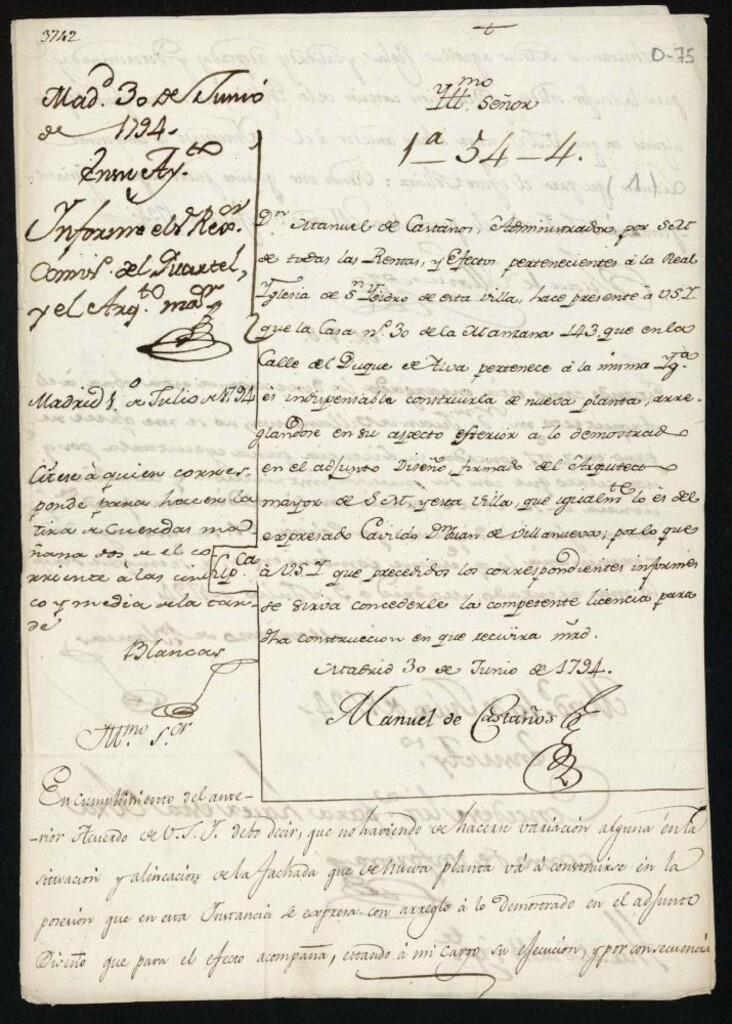 3742
D-75
Mad.d 30 de Junio
de 1794.
En su Ay.to
Informe el S.r Rex.or
Comis.o del Quartel,
y el Arq.to mayr
Madrid 1.o de Julio de 1794
Citese à quien corres-
ponde para hacer la
tira de Cuerdas ma-
ñana dos de el co-
rriente à las cin-
co y media de la tar-
de
Blancas
Yll.mo Señor
1a 54-4.
D.n Manuel de Castaños, Administrador por S.M.
de todas las Rentas, y Efectos pertenecientes à la Real
Yglesia de S.n Ysidro de esta Villa, hace presente à V.S.I.
que la Casa n.o 30 de la Manzana 143 que en la
Calle del Duque de Alva pertenece à la misma Ygª
és indispensable construirla de nueva planta, arre-
glandose en su aspecto esterior à lo demostrado
en el adjunto Diseño, firmado del Arquitecto
mayor de S.M. y esta Villa, que igualm.te lo es del
expresado Cavildo D.n Juan de Villanueva; por lo que
Sup.ca à V.S.I. que precedidos los correspondientes informes
se sirva concederle la competente licencia para
dha construccion en que recivira mrd.
Madrid 30 de Junio de 1794.
Manuel de Castaños
Yll.mo S.or
En cumplimiento del ante-
-rior Acuerdo de V.S.I. debo decir, que no haviendo de hacerse variación alguna en la
situacion y alineación de la fachada que de nueva planta vá á construirse en la
posesión que en esta Instancia se expresa con arreglo á lo Demostrado en el adjunto
Diseño que para el efecto acompaña, estando á mi cargo su ejecución, y por consecuencia